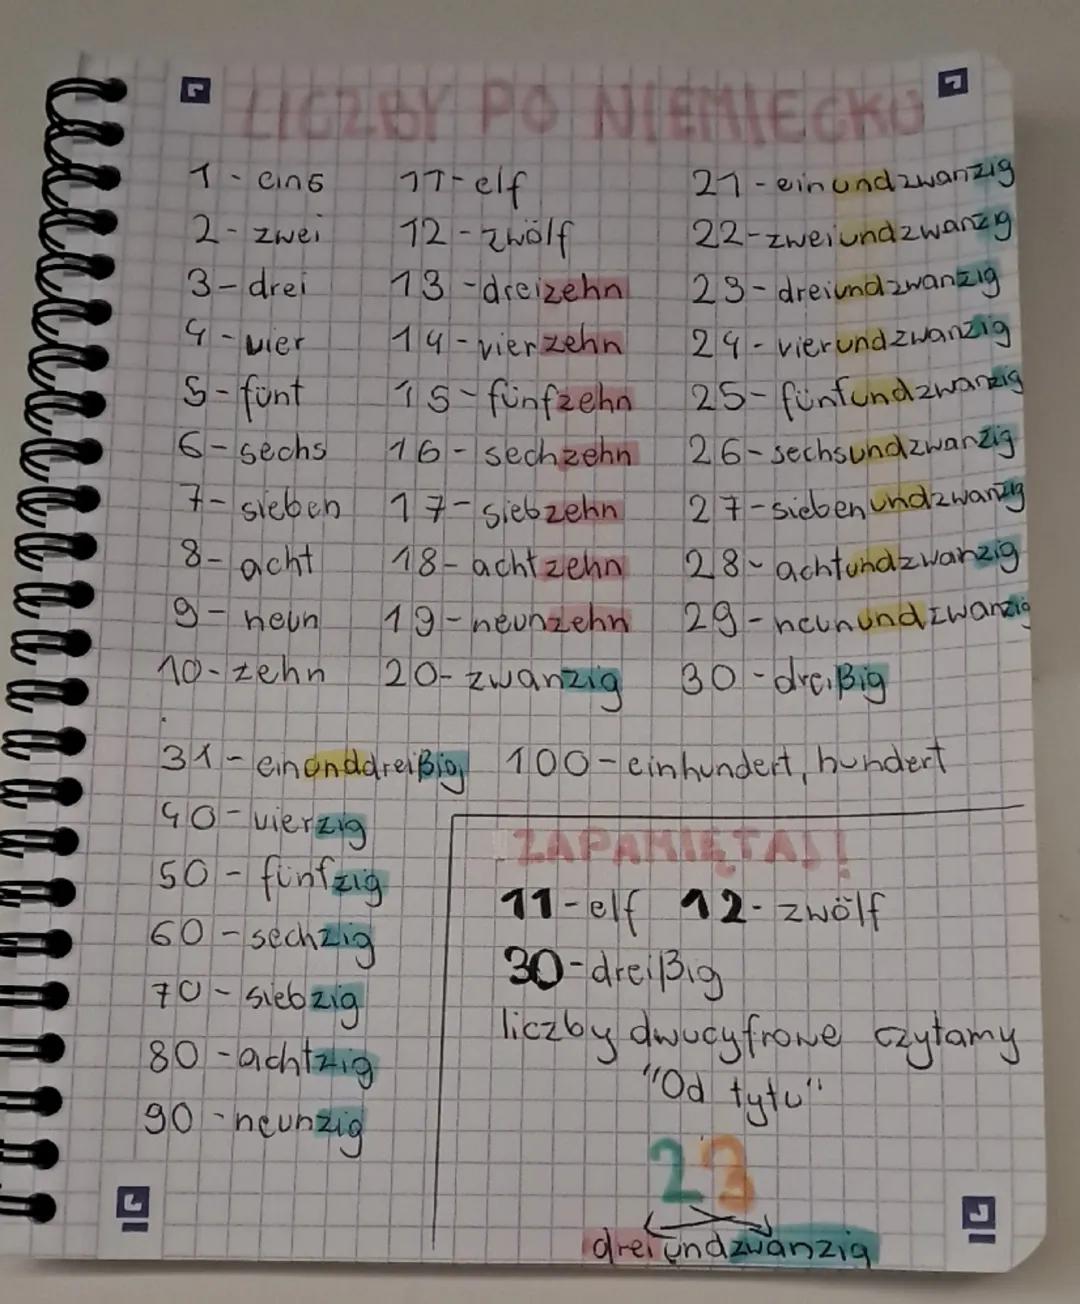 LICZBY PO NIEMIECKU
1 - eins
2 - zwei
3 - drei
4 - vier
5 - fünf
6 - sechs
7 - sieben
8 - acht
9 - neun
10 - zehn
11 - elf
12 - zwölf
13 - dreizehn
14 - vierzehn
15 - fünfzehn
16 - sechzehn
17 - siebzehn
18 - achtzehn
19 - neunzehn
20 - zwanzig
21 - einundzwanzig
22 - zweiundzwanzig
23 - dreiundzwanzig
24 - vierundzwanzig
25 - fünfundzwanzig
26 - sechsundzwanzig
27 - siebenundzwanzig
28 - achtundzwanzig
29 - neunundzwanzig
30 - dreißig
31 - einunddreißig
40 - vierzig
50 - fünfzig
60 - sechzig
70 - siebzig
80 - achtzig
90 - neunzig
100 - einhundert, hundert
ZAPAMIĘTAJ!
11 - elf 12 - zwölf
30 - dreißig
liczby dwucyfrowe czytamy
"Od tyłu"
23
dreiundzwanzig